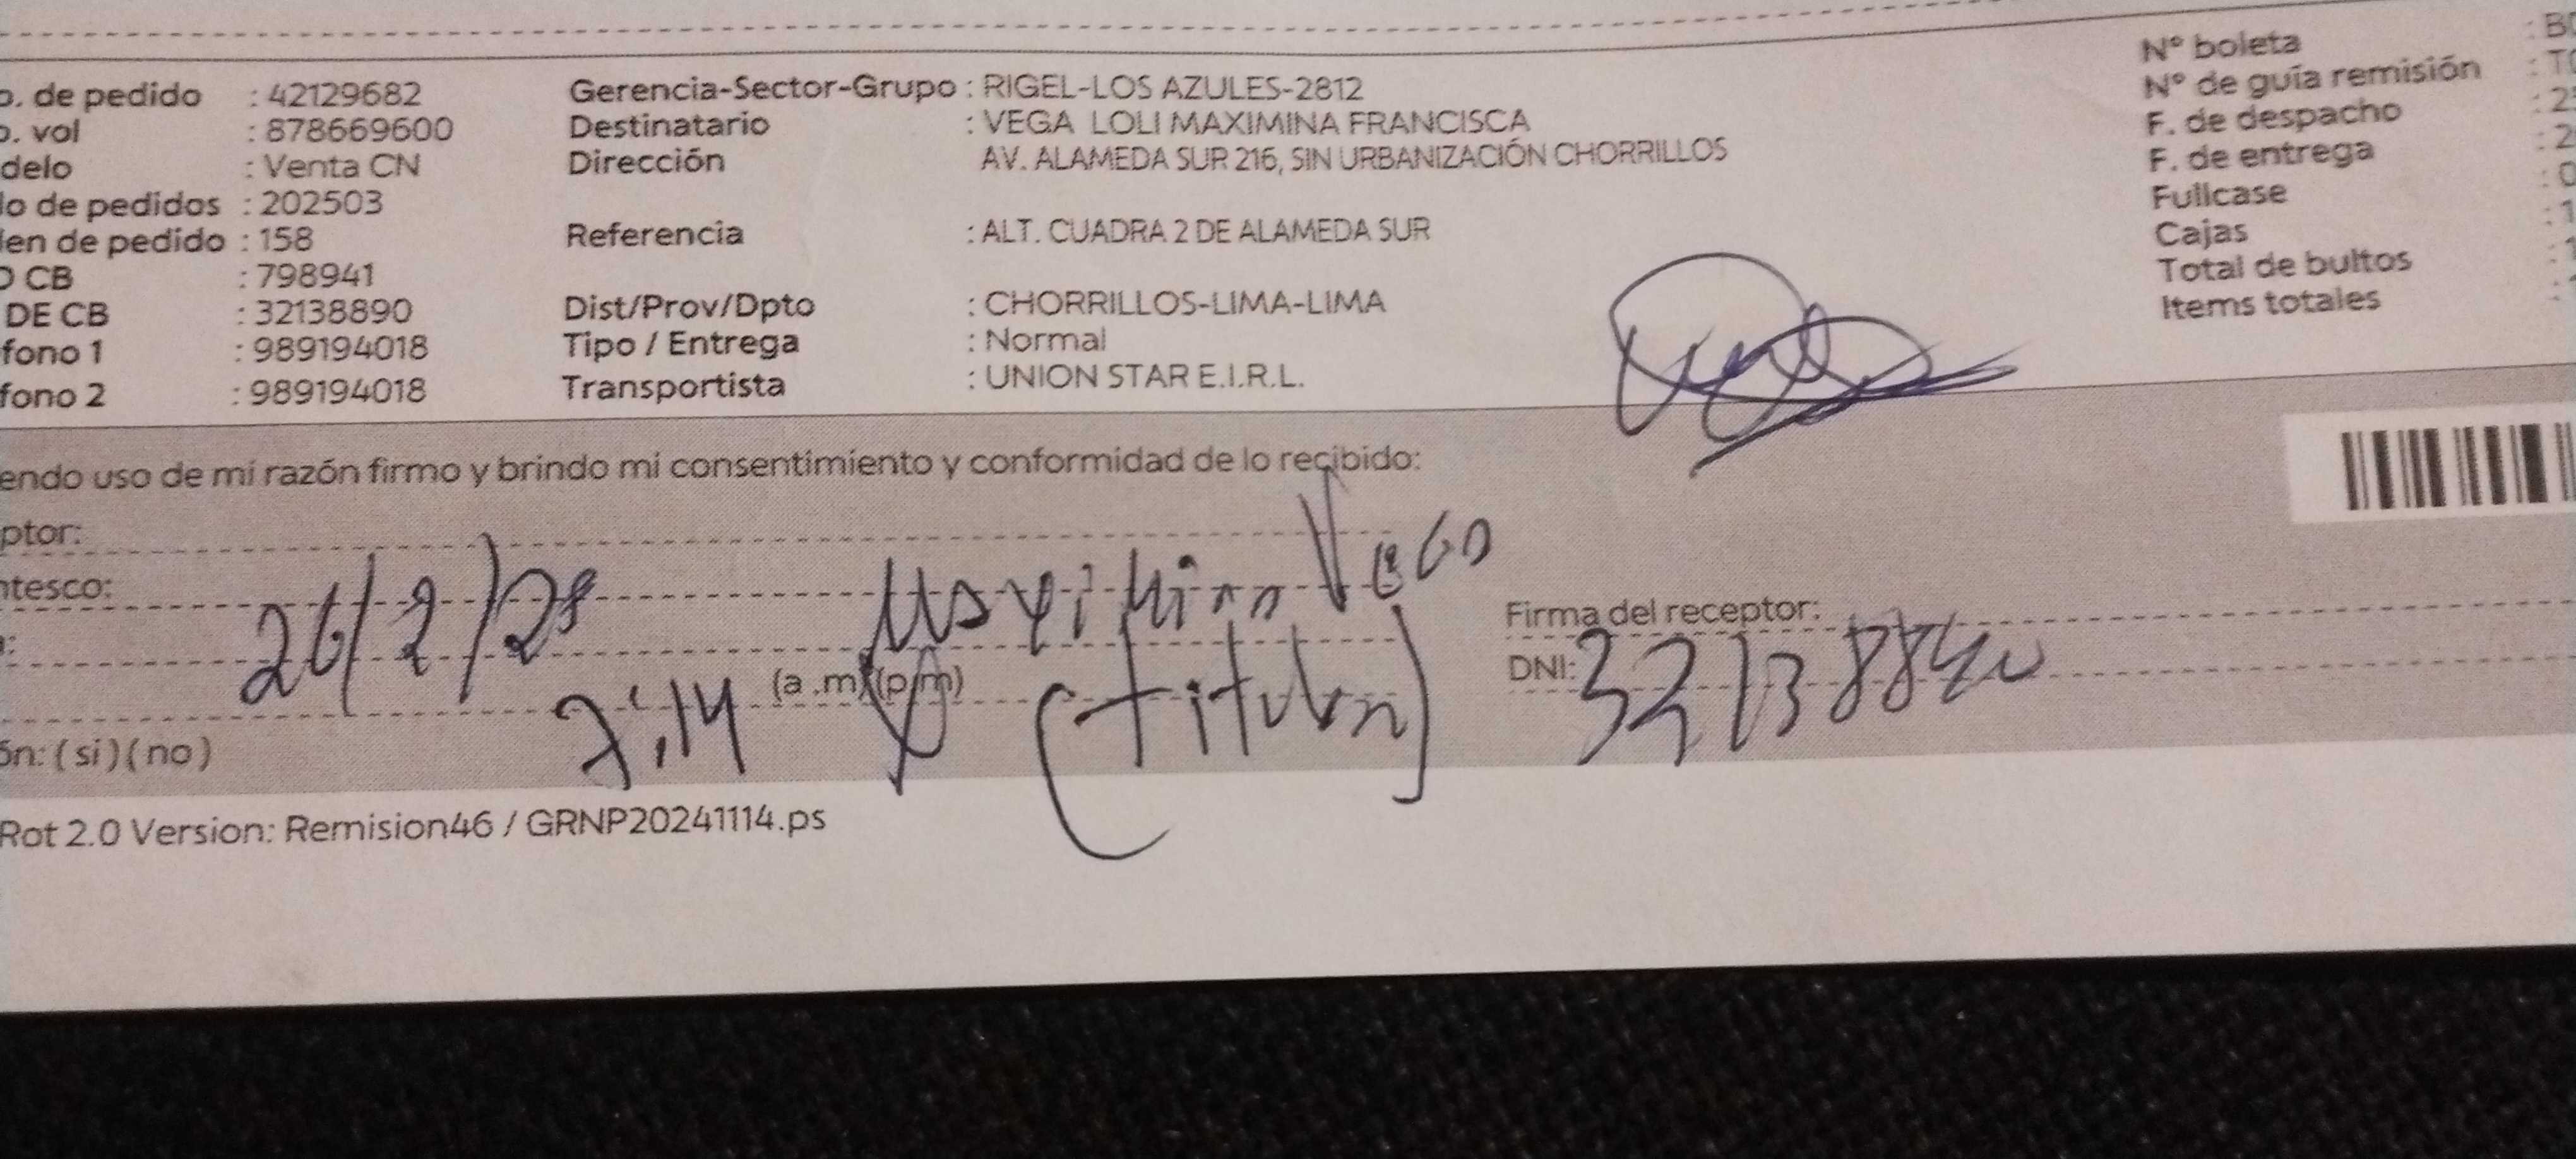 o. de pedido : 42129682 Gerencia-Sector-Grupo : RIGEL-LOS AZULES-2812 N° boleta : B
o. vol : 878669600 Destinatario : VEGA LOLI MAXIMINA FRANCISCA N° de guía remisión : T
delo : Venta CN Dirección AV. ALAMEDA SUR 216, SIN URBANIZACIÓN CHORRILLOS F. de despacho : 2
lo de pedidos : 202503 F. de entrega : 2
len de pedido : 158 Referencia : ALT. CUADRA 2 DE ALAMEDA SUR Fullcase : 0
O CB : 798941 Cajas : 1
DE CB : 32138890 Dist/Prov/Dpto : CHORRILLOS-LIMA-LIMA Total de bultos : 1
fono 1 : 989194018 Tipo / Entrega : Normal Items totales :
fono 2 : 989194018 Transportista : UNION STAR E.I.R.L.
endo uso de mi razón firmo y brindo mi consentimiento y conformidad de lo recibido:
ptor:
ntesco: Maximina Vega
a: 26/2/25 Firma del receptor:
2:14 (a .m)(p.m) (titular) DNI: 32138890
ón: ( si ) ( no )
Rot 2.0 Version: Remision46 / GRNP20241114.ps